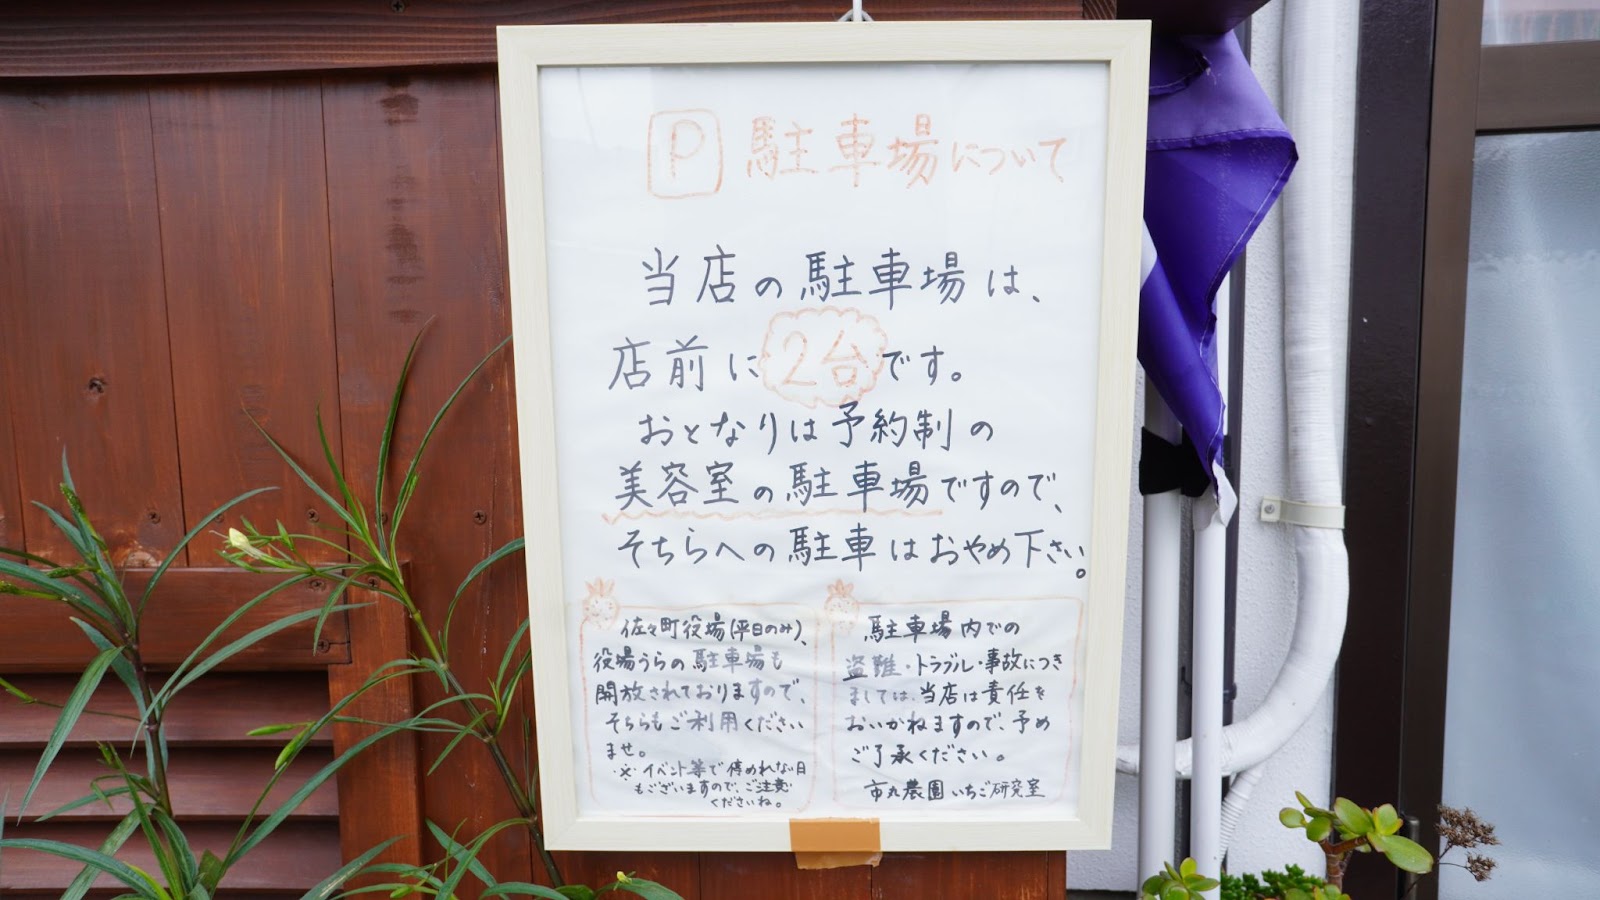 P 駐車場について
当店の駐車場は、
店前に2台です。
おとなりは予約制の
美容室の駐車場ですので、
そちらへの駐車はおやめ下さい。
佐々町役場(平日のみ)、
役場うらの駐車場も
開放されておりますので、
そちらもご利用ください
ませ。
※イベント等で停めれない日
もございますので、ご注意
くださいね。
駐車場内での
盗難・トラブル・事故につき
ましては、当店は責任を
おいかねますので、予め
ご了承ください。
市丸農園いちご研究室